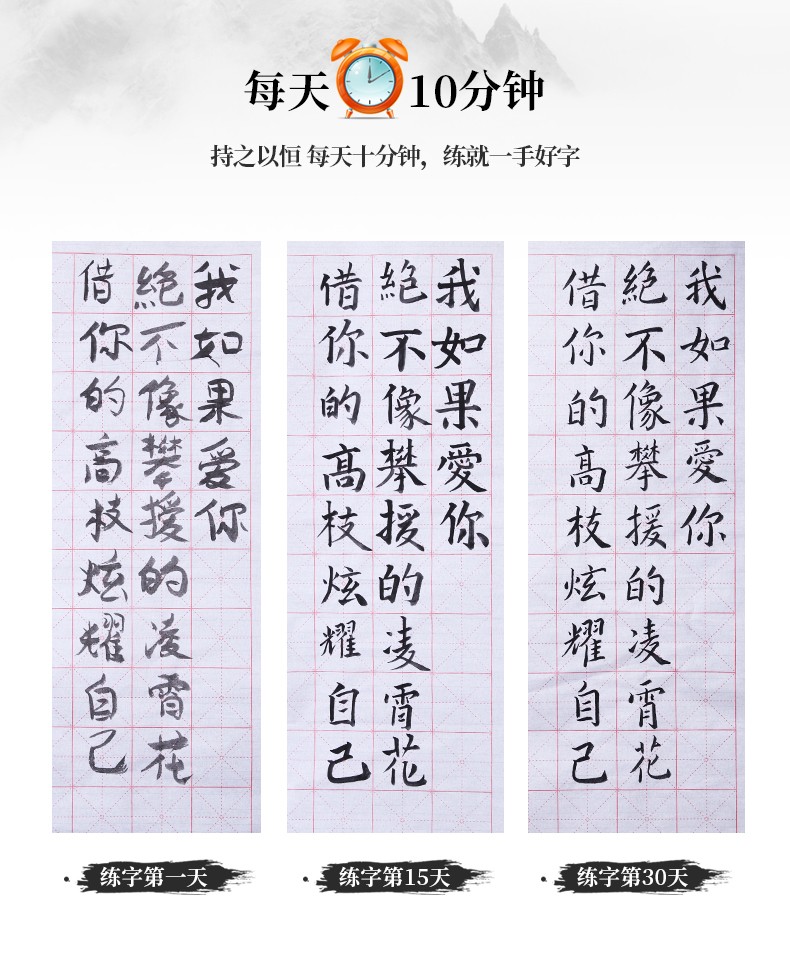 每天10分钟
持之以恒 每天十分钟，练就一手好字
我如果愛你
絕不像攀援的凌霄花
借你的高枝炫耀自己
我如果愛你
絕不像攀援的凌霄花
借你的高枝炫耀自己
我如果愛你
絕不像攀援的凌霄花
借你的高枝炫耀自己
练字第一天
练字第15天
练字第30天